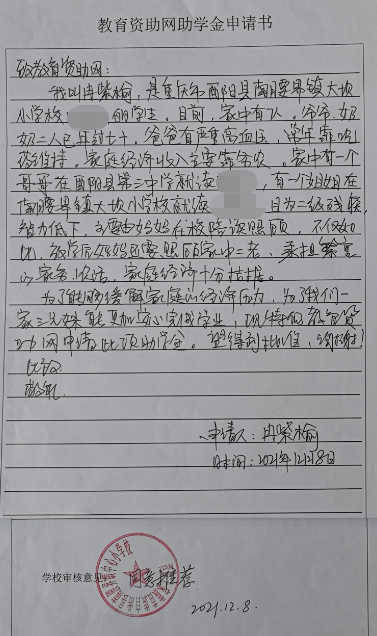 教育资助网助学金申请书
致教育资助网：
我叫冉紫榆，是重庆市酉阳县南腰界镇大坝
小学校 的学生，目前，家中有 人，爷爷、奶
奶二人已年过七十，爸爸有严重高血压，常年靠吃
药维持。家庭经济收入主要靠务农。家中有一个
哥哥在酉阳县第三中学就读 ，有一个姐姐在
南腰界镇大坝小学校就读 且为二级残疾，
智力低下，主要由妈妈在校陪读照顾，不仅如
此，放学后妈妈还要照顾家中二老，承担繁重
的家务农活，家庭经济十分拮据。
为了能够缓解家庭的经济压力，为了我们一
家三兄妹能更加安心完成学业，现特向教育资
助网申请此项助学金。望得到批准，谢谢！
此致
敬礼
申请人：冉紫榆
时间：2021年12月8日
学校审核意见： 同意推荐
2021.12.8.